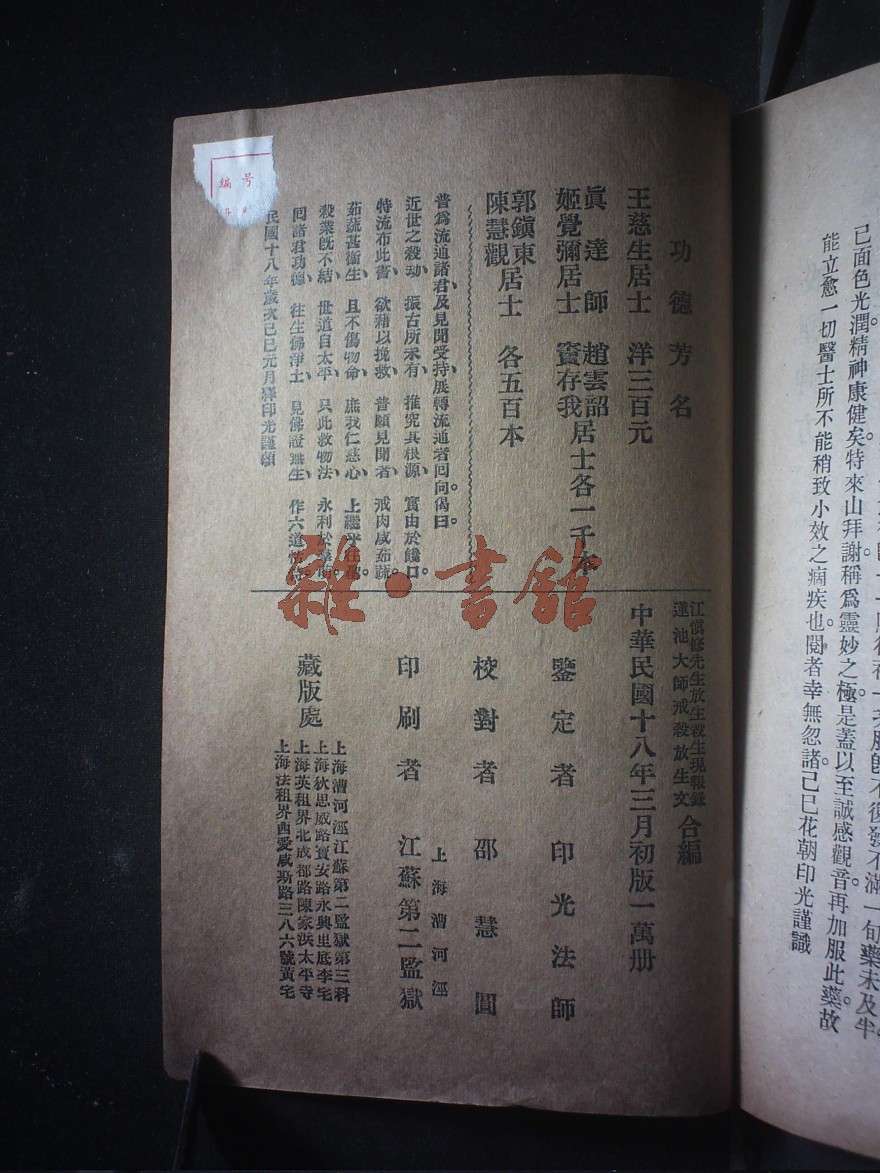 能立愈一切醫士所不能稍致小效之痼疾也閱者幸無忽諸己巳花朝印光謹識
已面色光潤精神康健矣。特來山拜謝稱爲靈妙之極。是蓋以至誠感觀音再加服此藥。故
功德芳名
王慈生居士 洋三百元
眞達師 趙雲韶
姬覺彌居士 竇存我 居士各一千本
郭鎭東
陳慧觀 居士 各五百本
普爲流通諸君及見聞受持展轉流通者回向偈曰。
近世之殺劫、振古所未有、推究其根源、實由於饞口。
特流布此書、欲藉以挽救、普願見聞者、戒肉咸茹蔬。
茹蔬甚衞生、且不傷物命、庶我仁慈心、上繼乎往
殺業旣不結、世道自太平、只此救物法、永利於
回諸君功德、往生佛淨土、見佛證無生、作六道
民國十八年歲次己巳元月釋印光謹頌
江愼修先生放生殺生現報錄
蓮池大師戒殺放生文 合編
中華民國十八年三月初版一萬册
鑒定者 印光法師
校對者 邵慧圓
印刷者 上海漕河涇 江蘇第二監獄
藏版處
上海漕河涇江蘇第二監獄第三科
上海狄思威路寳安路永興里底李宅
上海英租界北成都路陳家浜太平寺
上海法租界西愛咸斯路三八六號黃宅
編号
雜·書舘